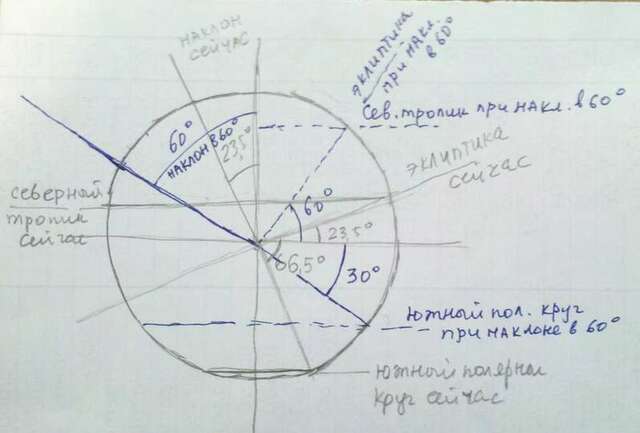 НАКЛОН
СЕЙЧАС
ЭКЛИПТИКА
ПРИ НАКЛ.
В 60°
60°
НАКЛОН В 60°
23,5°
СЕВ. ТРОПИК ПРИ НАКЛ. В 60°
ЭКЛИПТИКА
СЕЙЧАС
СЕВЕРНЫЙ
ТРОПИК
СЕЙЧАС
60°
23,5°
66,5°
30°
ЮЖНЫЙ ПОЛ. КРУГ
ПРИ НАКЛОНЕ В 60°
ЮЖНЫЙ ПОЛЯРНЫЙ
КРУГ СЕЙЧАС